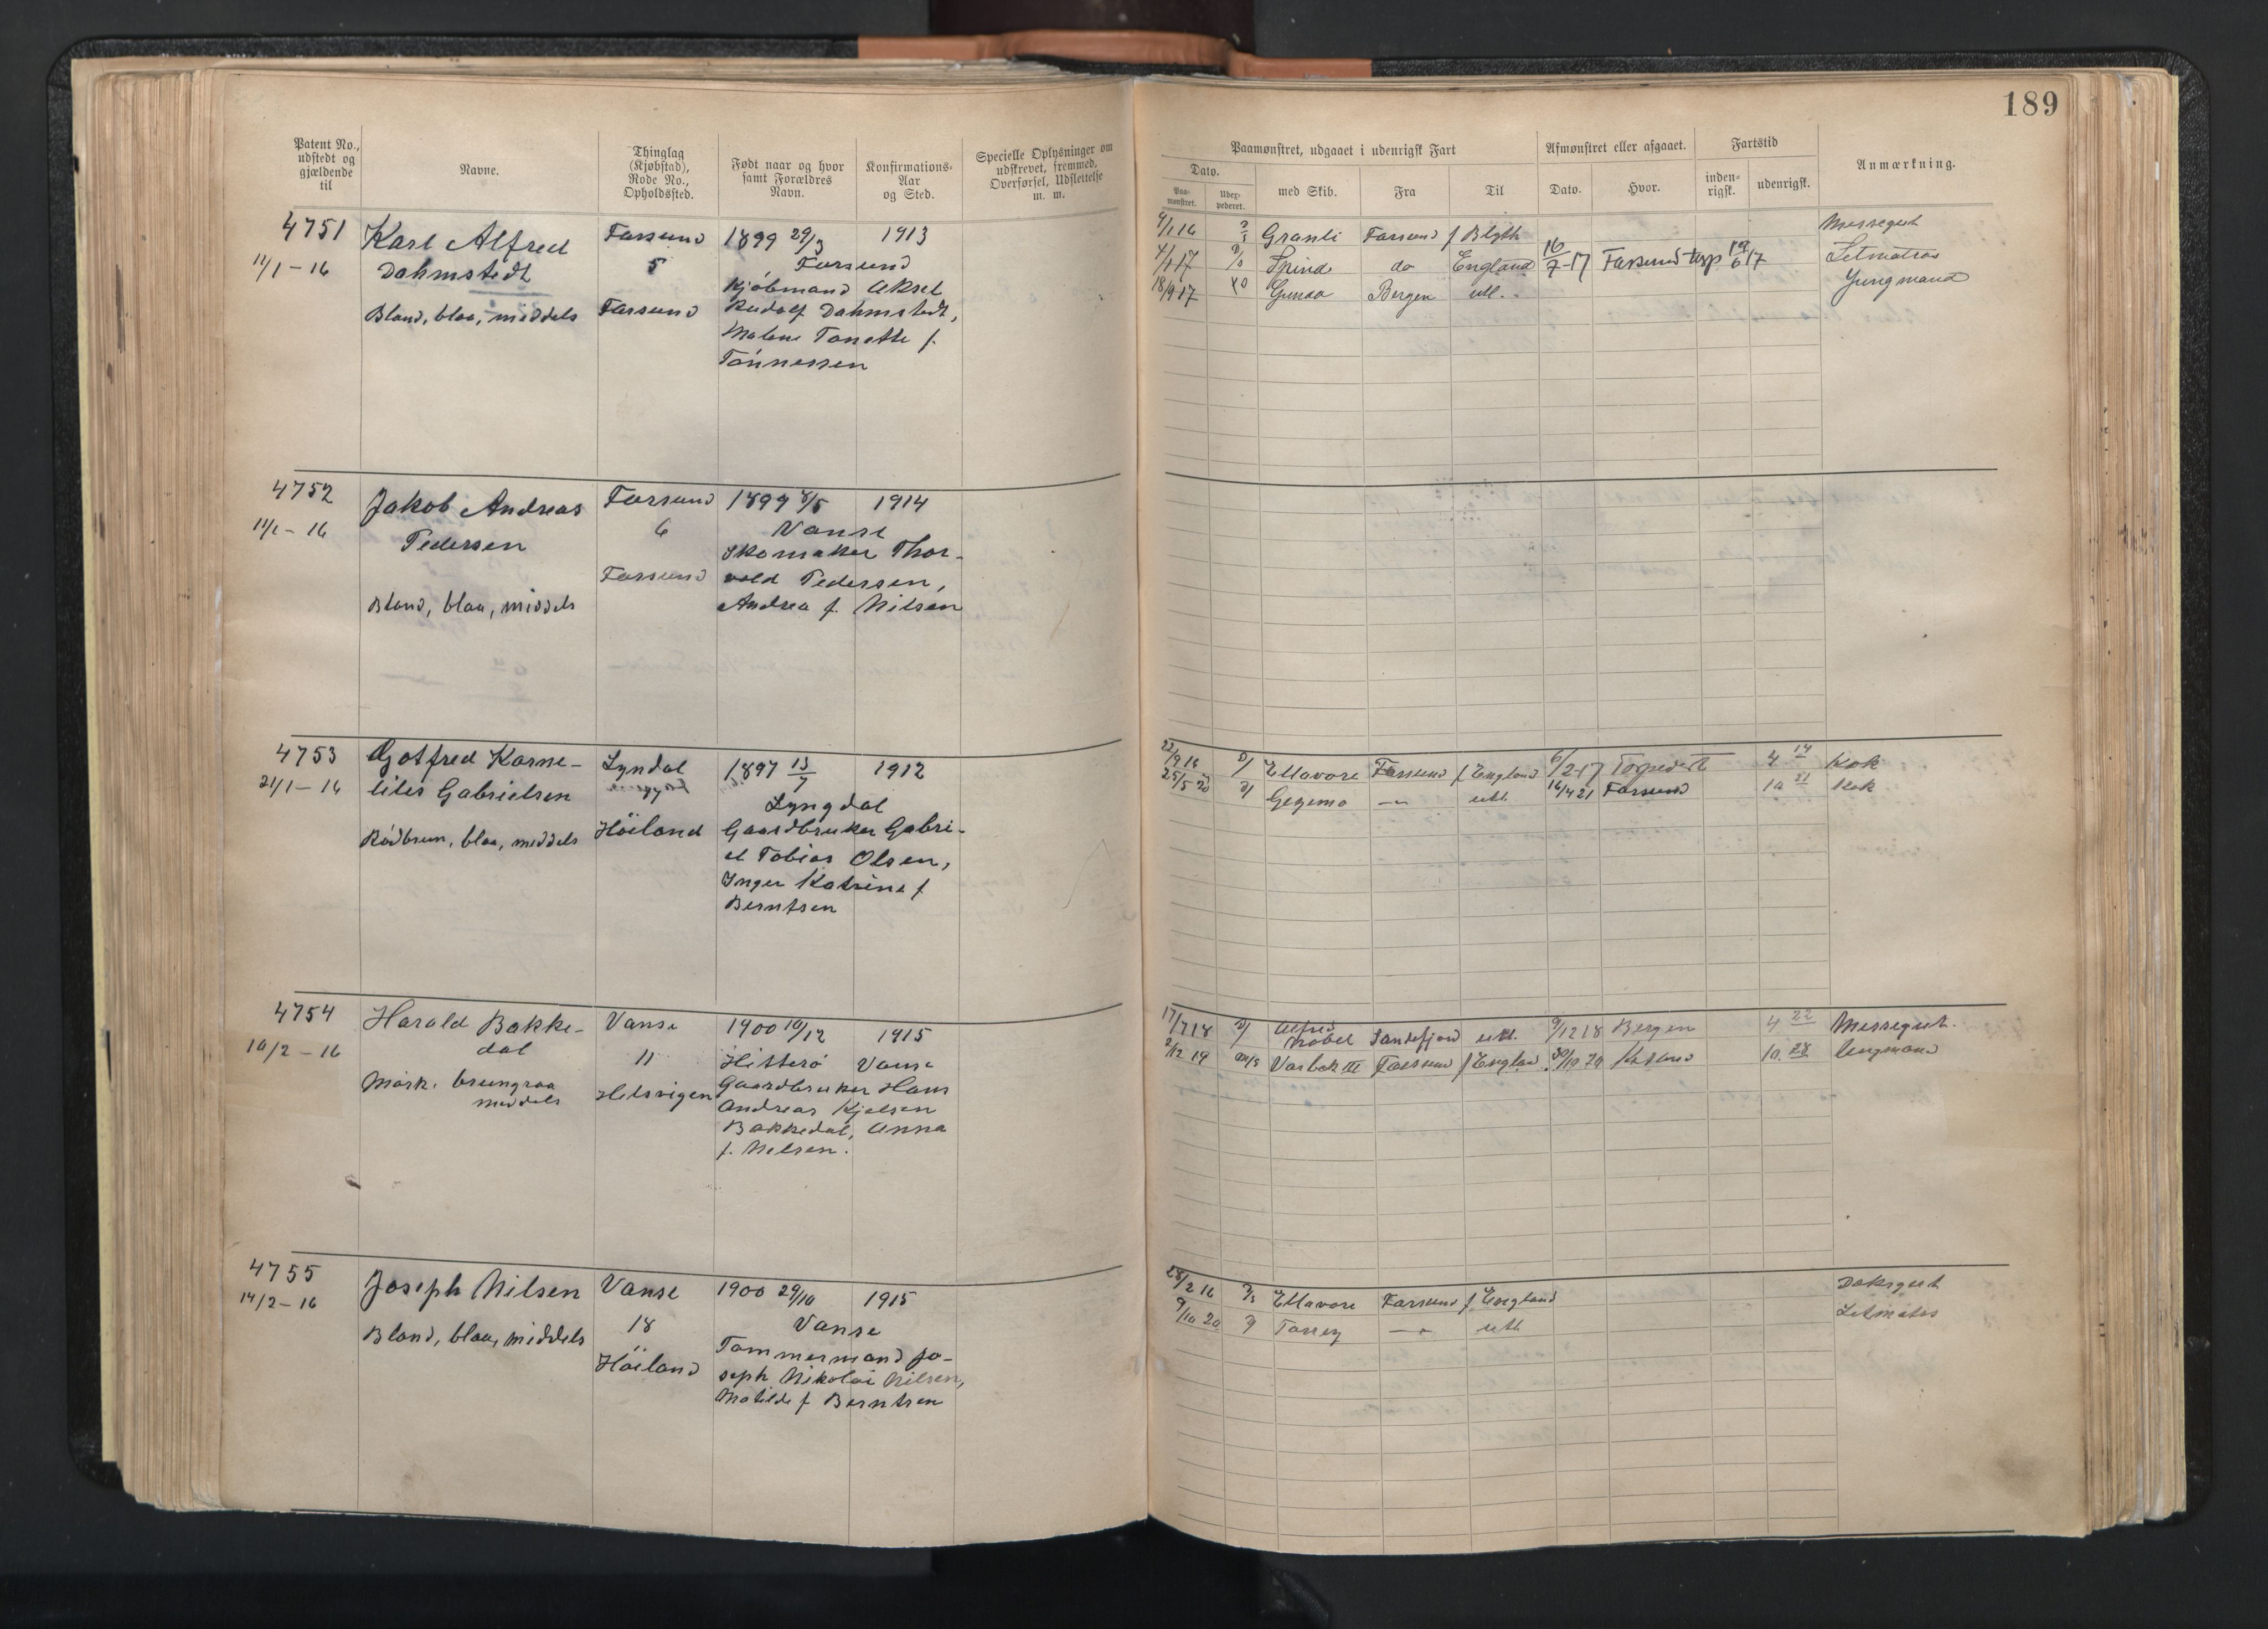 189
Patent No., udstedt og gjældende til
Navne.
Thinglag (Kjøbstad), Rode No., Opholdssted.
Født naar og hvor samt Forældres Navn.
Konfirmations-Aar og Sted.
Specielle Oplysninger om udskrevet, fremmed, Overførsel, Udslettelse m. m.
Paamønstret, udgaaet i udenrigsk Fart
Afmønstret eller afgaaet.
Fartstid
Anmærkning.
Dato.
Paamønstret.
med Skib.
Fra
Til
Dato.
Hvor.
inden-rigsk.
udenrigsk.
4751
11/1 - 16
Karl Alfred
Dahmstedt
Blond, blaa, middels
Farsund
5
Farsund
1899 29/3 1913
Farsund
Kjøbmand Aksel
Rudolf Dahmstedt,
Malene Tonette f.
Tönnessen
9/1 16 Granli Farsund f Blyth Messegut
4/1 17 Spind do England 16/7-17 Farsund torp 19/6 17 Letmatros
18/9 17 Gunda Bergen utl. Jungmand
4752
11/1 - 16
Jakob Andreas
Pedersen
Blond, blaa, middels
Farsund
6
Farsund
1899 8/5 1914
Vanse
Skomaker Thor-
vald Pedersen,
Andrea f. Nilsen
4753
21/1 - 16
Gotfred Korne-
lius Gabrielsen
Rödbrun, blaa, middels
Lyndal
Höiland
1897 13/7 1912
Lyngdal
Gaardbruker Gabri-
el Tobias Olsen,
Inger Katrine f
Berntsen
22/9 16 Ellavore Farsund f England 6/2 17 Torpedert 4 14 Kok
25/5 20 Gezema -"- utl 16/4 21 Farsund 10 21 Kok
4754
10/2 - 16
Harald Bakke-
dal
Mörk. brungraa
middels
Vanse
11
Helsvigen
1900 10/12 1915
Hitterö Vanse
Gaardbruker Hans
Andreas Kjelsen
Bakkedal, Anna
f. Nilsen.
17/7 18 Alfred Nobel Sandefjord utl. 9/12 18 Bergen 4 22 Messegut.
2/12 19 Varbak III Farsund f England 30/10 20 10 28 Jungmand
4755
14/2 - 16
Joseph Nilsen
Blond, blaa, middels
Vanse
18
Höiland
1900 29/10 1915
Vanse
Tömmermand Jo-
seph Nikolai Nilsen,
Matilde f Berntsen
28/2 16 Ellavore Farsund f England Doksgut
9/10 20 Torrey -"- utl Letmatros